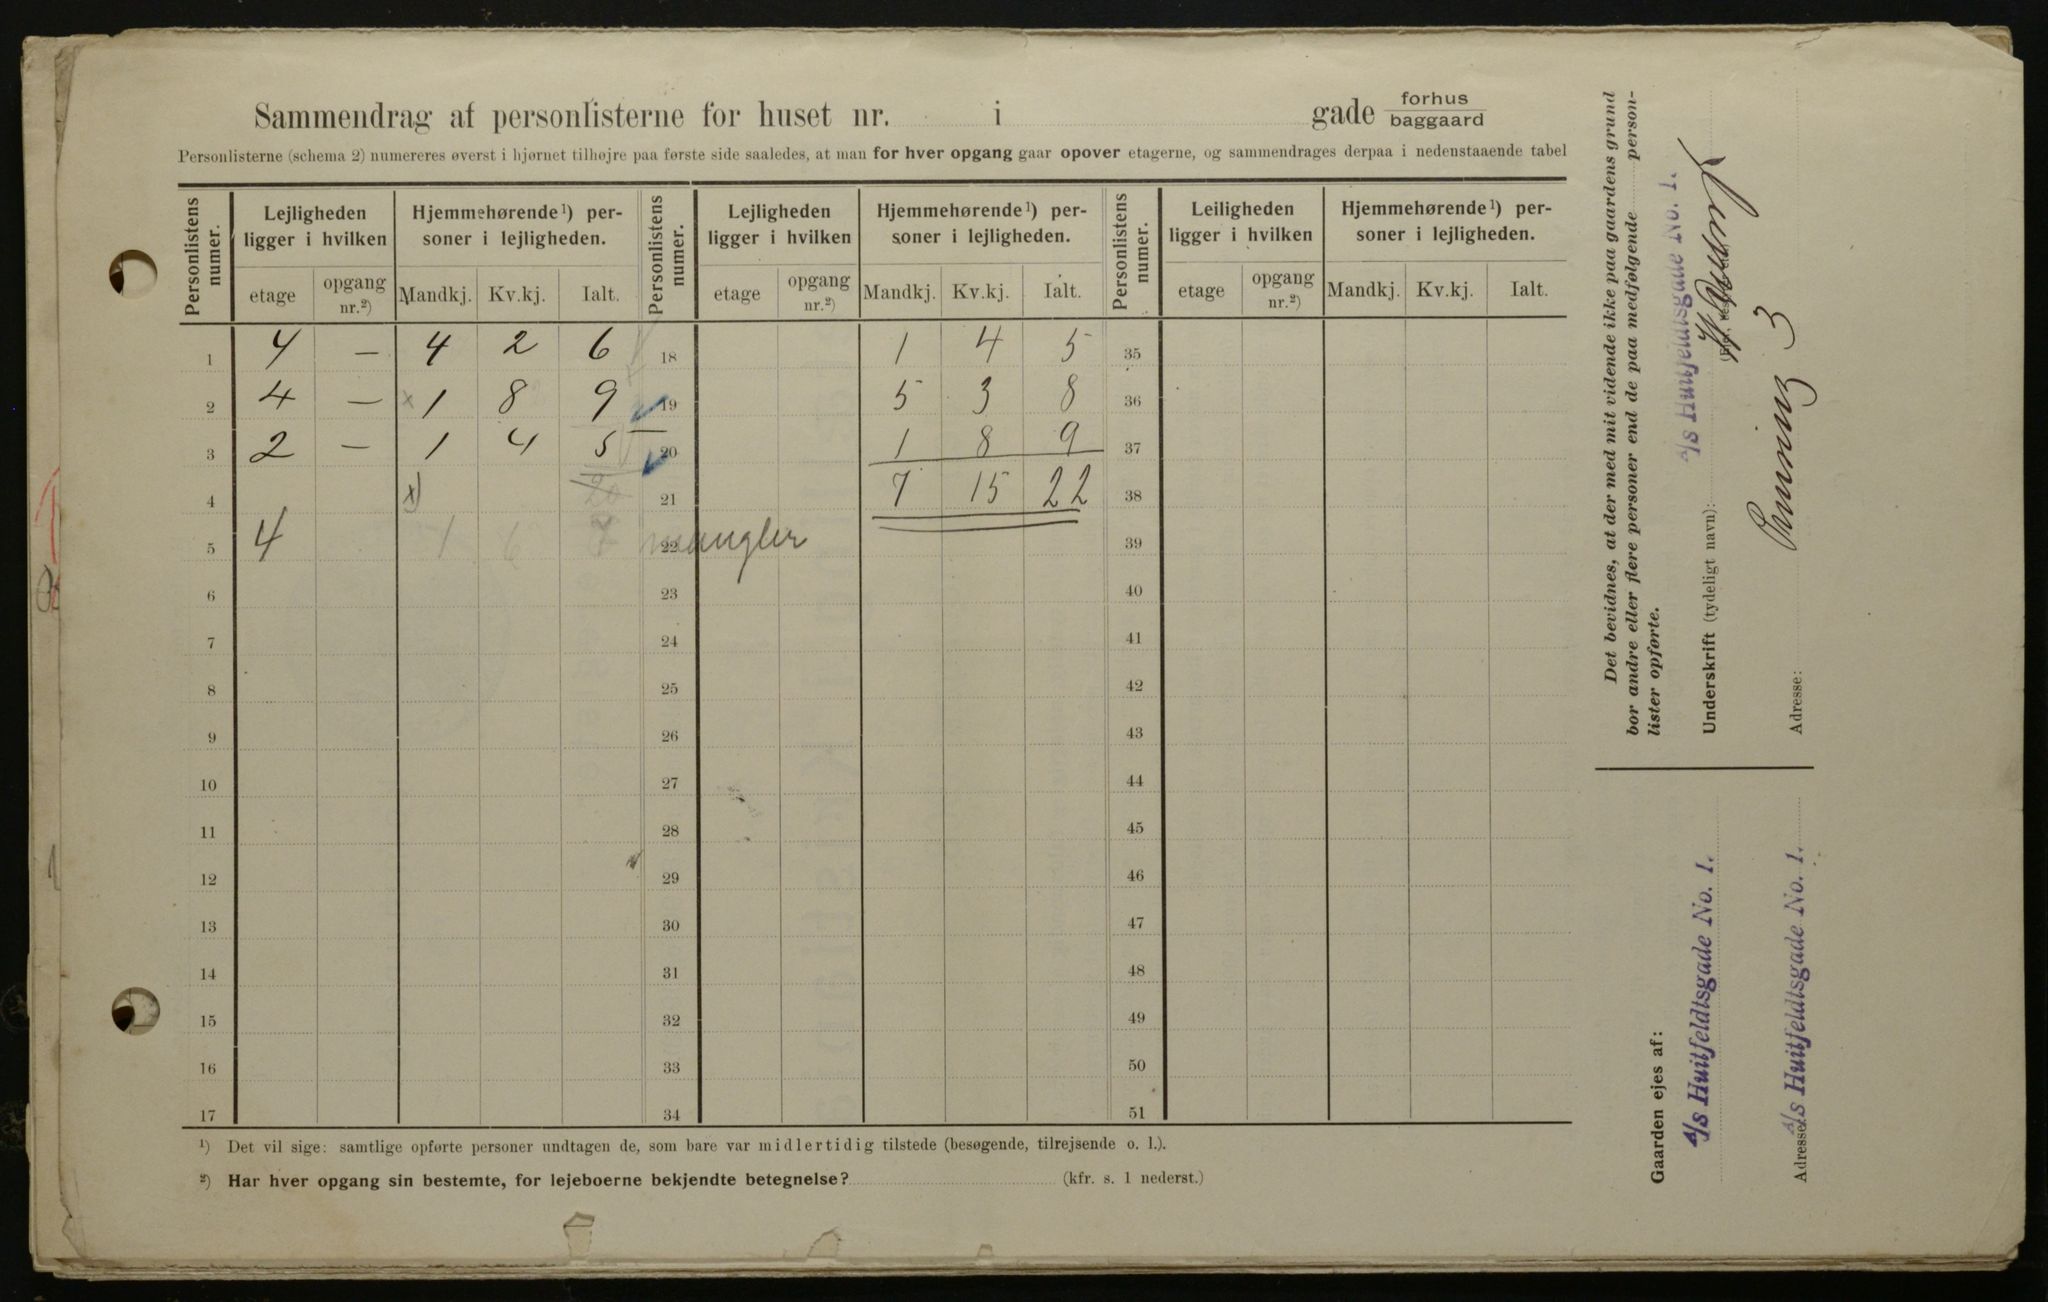 Sammendrag af personlisterne for huset nr. i gade forhus
baggaard
Personlisterne (schema 2) numereres øverst i hjørnet tilhøjre paa første side saaledes, at man for hver opgang gaar opover etagerne, og sammendrages derpaa i nedenstaaende tabel
Personlistens numer. Lejligheden ligger i hvilken Hjemmehørende ¹) personer i lejligheden. Personlistens numer. Lejligheden ligger i hvilken Hjemmehørende ¹) personer i lejligheden. Personlistens numer. Leiligheden ligger i hvilken Hjemmehørende ¹) personer i lejligheden.
etage opgang nr.²) Mandkj. Kv.kj. Ialt. etage opgang nr.²) Mandkj. Kv.kj. Ialt. etage opgang nr.²) Mandkj. Kv.kj. Ialt.
1 4 — 4 2 6 18 1 4 5 35
2 4 — x 1 8 9 19 5 3 8 36
3 2 — 1 4 5 20 1 8 9 37
4 x) 20 21 7 15 22 38
5 4 1 6 7 22 mangler 39
6 23 40
7 24 41
8 25 42
9 26 43
10 27 44
11 28 45
12 29 46
13 30 47
14 31 48
15 32 49
16 33 50
17 34 51
¹) Det vil sige: samtlige opførte personer undtagen de, som bare var midlertidig tilstede (besøgende, tilrejsende o. l.).
²) Har hver opgang sin bestemte, for lejeboerne bekjendte betegnelse? (kfr. s. 1 nederst.)
Det bevidnes, at der med mit vidende ikke paa gaardens grund
bor andre eller flere personer end de paa medfølgende person-
lister opførte.
A/s Huitfeldtsgade No. 1.
Underskrift (tydeligt navn):
Adresse: 3
Gaarden ejes af:
A/s Huitfeldtsgade No. 1.
Adresse: A/s Huitfeldtsgade No. 1.